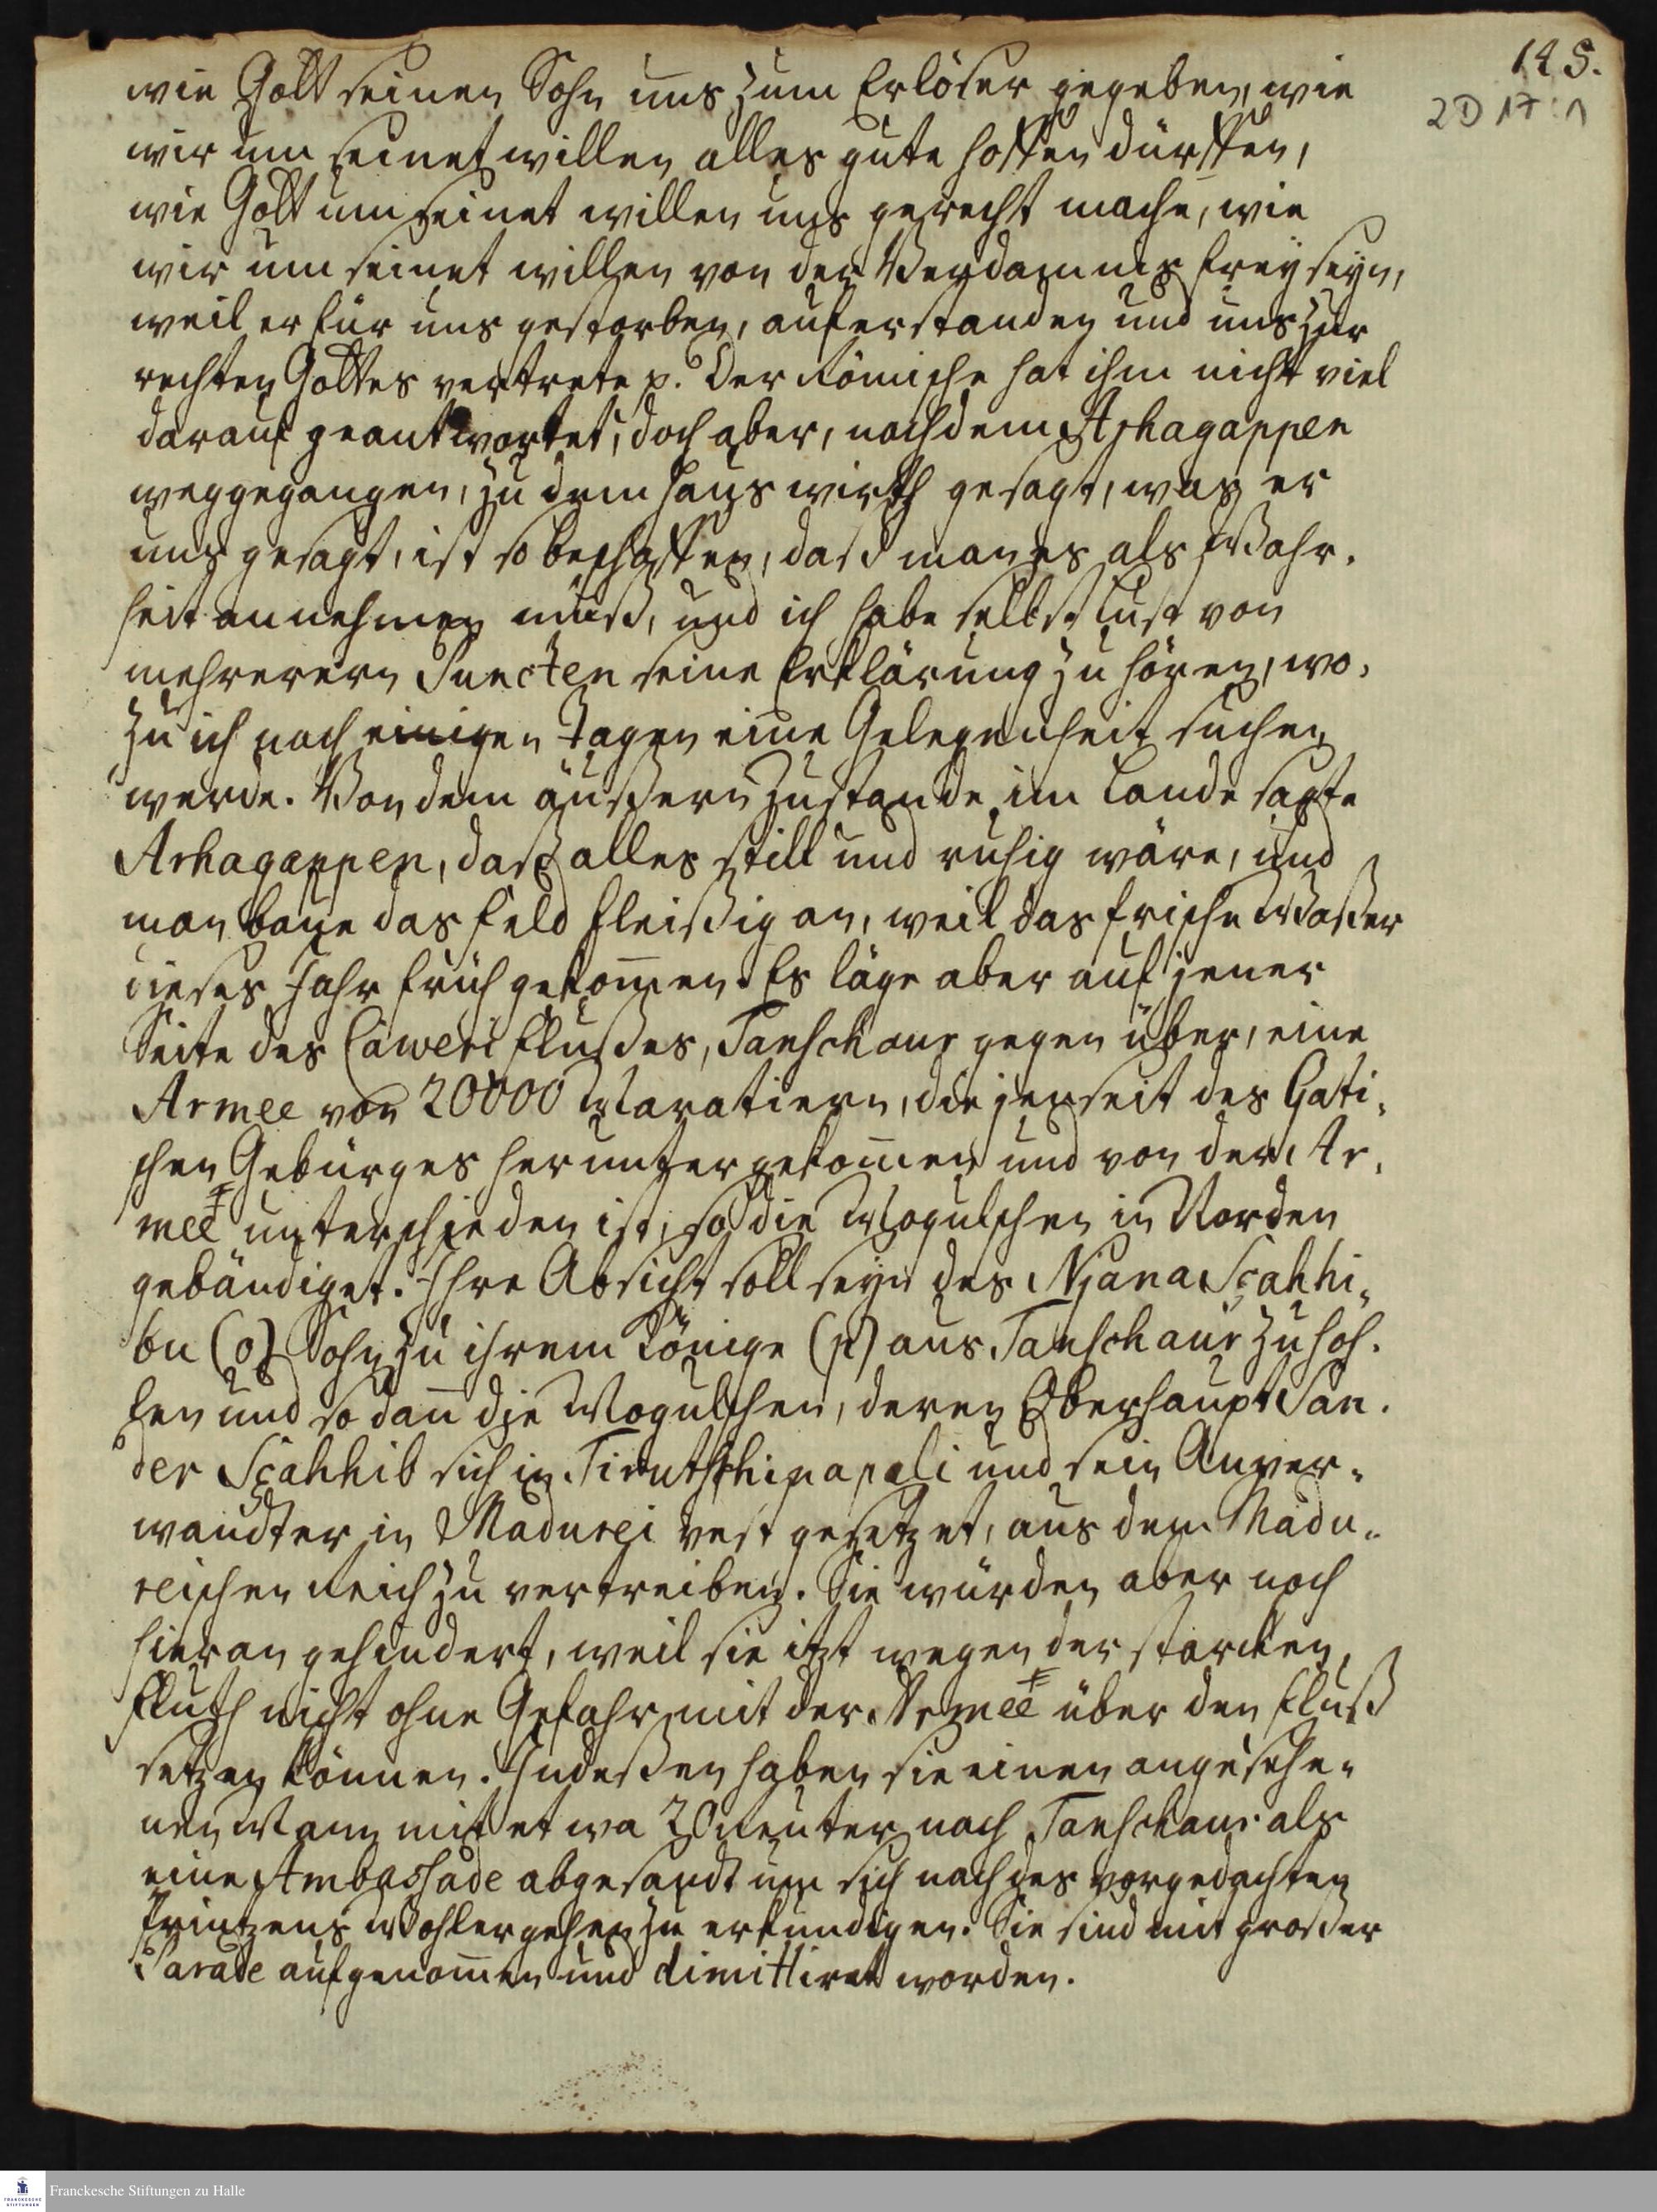 145.
2D 17:1
wie Gott seinen Sohn uns zum Erlöser gegeben, wie
wir um seinet willen alles gute hoffen dürffen,
wie Gott um seinet willen uns gerecht mache, wie
wir um seinet willen von der Verdamnis frey seyn,
weil er für uns gestorben, auferstanden und uns zur
rechten Gottes vertrete p. Der Römische hat ihm nicht viel
darauf geantwortet, doch aber, nachdem Arhagappen
weggegangen, zu dem Haus wirth gesagt, was er
uns gesagt, ist so beschaffen, daß man es als Wahr-
heit annehmen muß, und ich habe selbst Lust von
mehrerern Puncten seine Erklärung zu hören, wo-
zu ich nach einigen Tagen eine Gelegenheit suchen
werde. Von dem äußern Zustande im Lande sagte
Arhagappen, daß alles still und ruhig wäre, und
man baue das Feld fleißig an, weil das frische Waßer
dieses Jahr früh gekomen. Es läge aber auf jener
Seite des Caweri Flußes, Tanschaur gegen über, eine
Armee von 20000 Maratiern, die jenseit des Gati-
schen Gebürges herunter gekomen und von der Ar-
mee unterschieden ist, so die Mogulschen in Norden
gebändiget. Ihre Absicht soll seyn des Njana Scahhi-
bu (o) Sohn zu ihrem Könige (p) aus Tanschaur zu hoh-
len und so dan die Mogulschen, deren Oberhaupt San-
der Scahhib sich in Tirutschinapali und sein Anver-
wandter in Madurei vest gesetzet, aus dem Madu-
reischen Reich zu vertreiben. Sie würden aber noch
hieran gehindert, weil sie itzt wegen der starcken
Fluth nicht ohne Gefahr mit der Armee über den Fluß
setzen können. Indeßen haben sie einen angesehe-
nen Mann mit etwa 20 Reuter nach Tanschaur als
eine Ambassade abgesandt um sich nach des vorgedachten
Printzens Wohlergehen zu erkundigen. Sie sind mit großer
Parade aufgenomen und dimittiret worden.
FRANCKESCHE STIFTUNGEN
Franckesche Stiftungen zu Halle